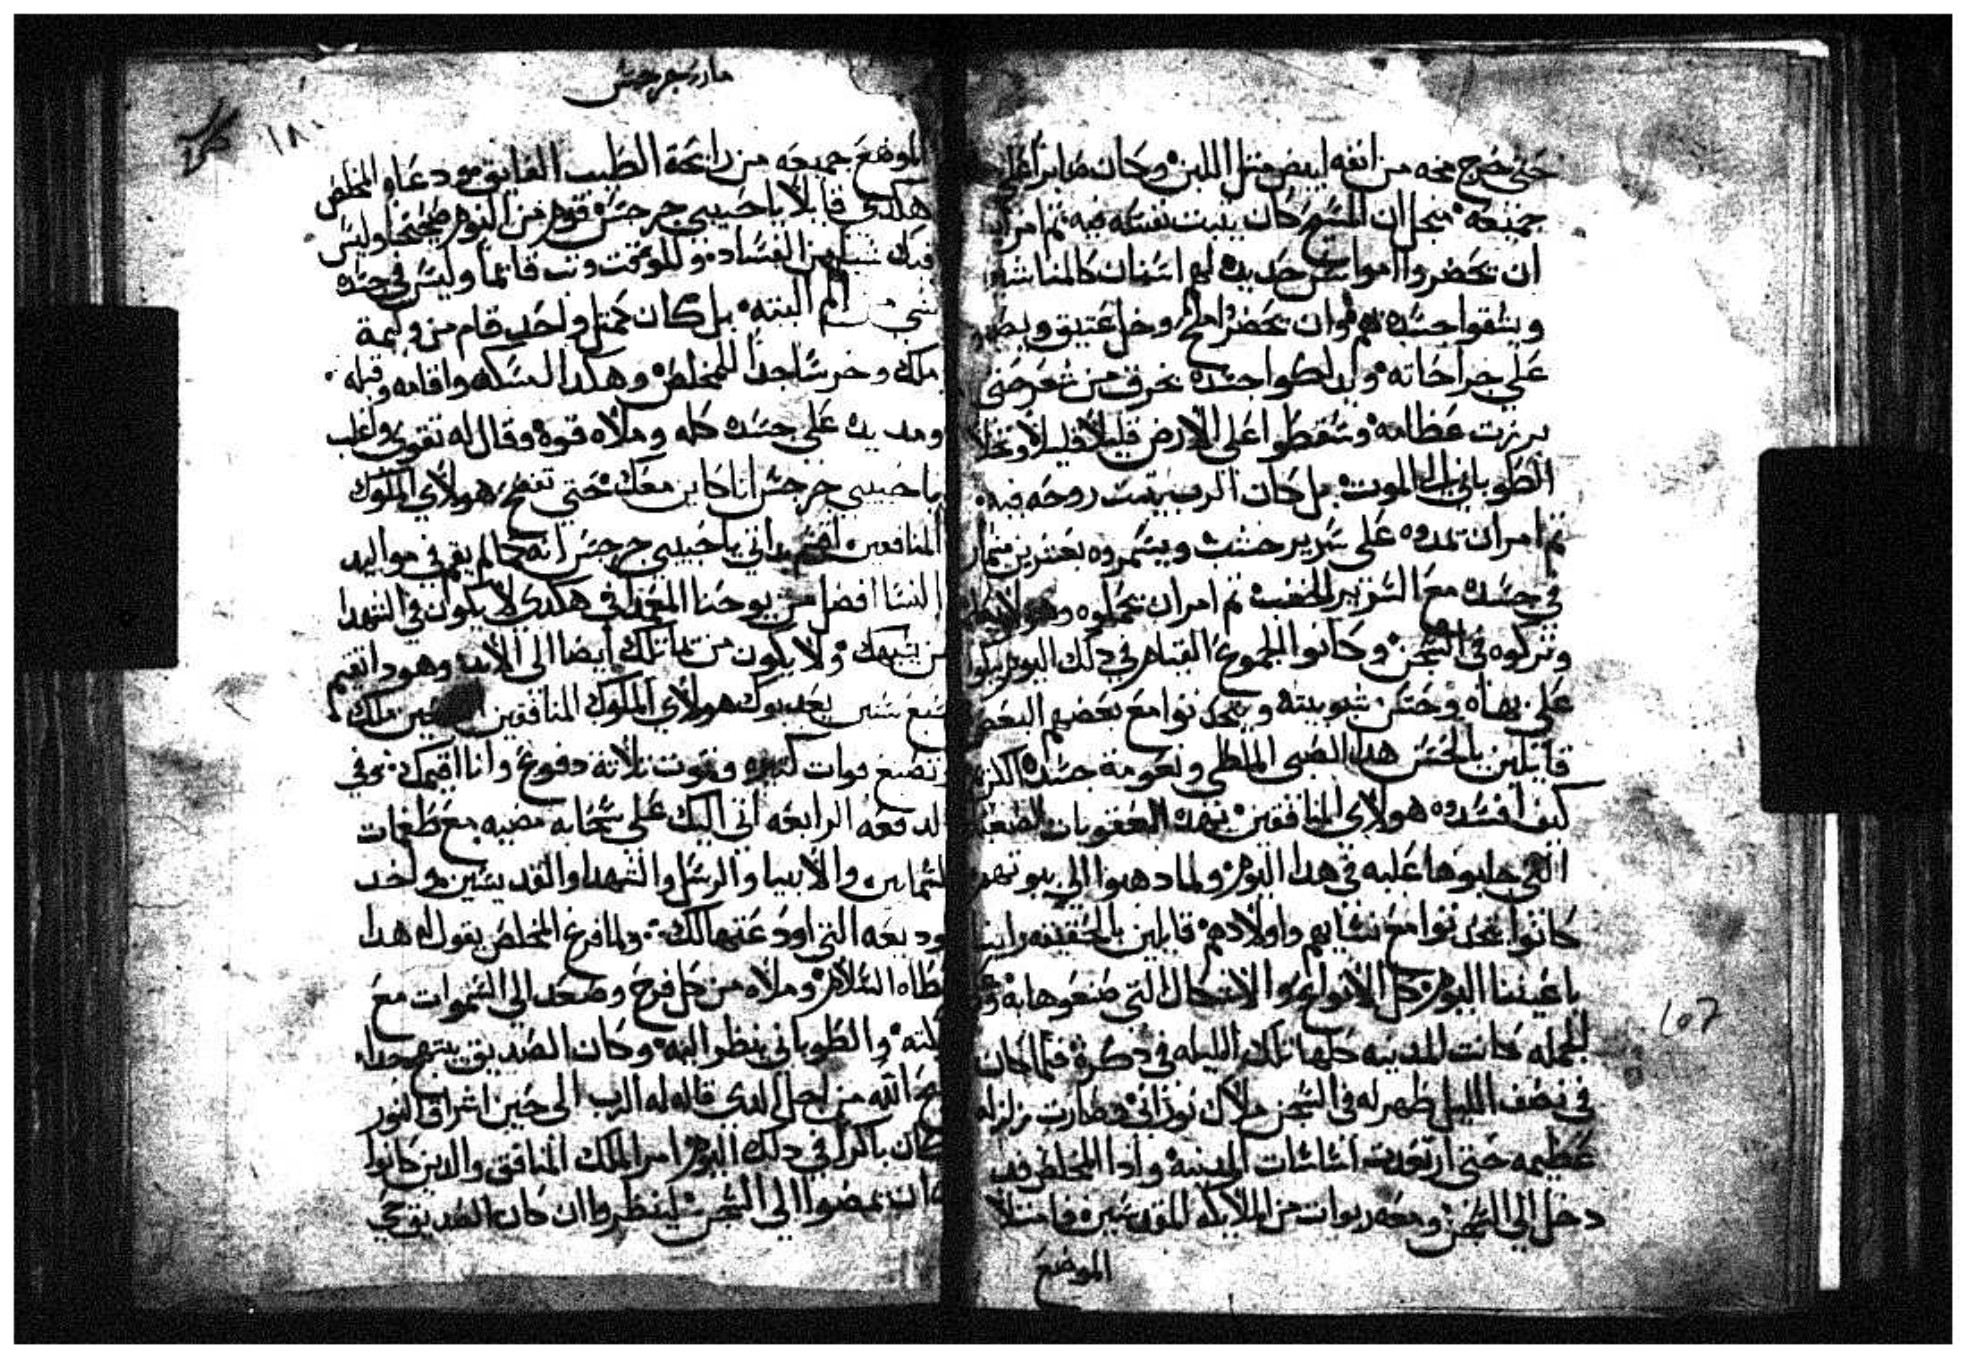 حتى خرج مخه من انفه ابيض مثل اللبن وكان صابرا على
جميعه من اجل ان المسيح كان يثبت نفسه فيه ثم امر
ان يحضروا امواس حديد لهم اسنان كالمناشير
ويشقوا جسده بهم وان يحضروا ملح وخل عتيق
على جراحاته ويدلكوا جسده بخرق من شعر حتى
برزت عظامه وسقطوا على الارض قليلا قليلا
الطوباني الموت بل كان الرب يثبت روحه فيه
ثم امر ان يمدوه على سرير خشب ويسمروه بعشرين مسمار
في جسده مع السرير الخشب ثم امر ان يحملوه
وتركوه في السجن وكانوا الجموع القيام في دلك اليوم يبكوا
على بهاه وحسن شبوبيته ويتحدثوا مع بعضهم البعض
قايلين يا لحسن هدا الصبي الملطي ونعومة جسده
كيف افسدوه هولاي المنافقين بهده العقوبات الصعبة
التي جلبوها عليه في هدا اليوم ولما دهبوا الي بيوتهم
كانوا يتحدثوا مع نسايهم واولادهم قايلين بالحقيقه راينا
باعيننا اليوم كل الانواع والاشكال التي صنعوها به
الجمله كانت المدينه كلها تلك الليله في دكره فلما كان
في نصف الليل ظهر له في السجن ملاك نوراني وصارت زلزله
عظيمه حتى ارتعدت اساسات المدينة وادا المخلص قد
دخل الي السجن ومعه ربوات من الملايكه المقدسين فامتلا
الموضع
مار جرجس
الموضع جميعه من رائحة الطيب الفايق ودعاه المخلص
هكدى قايلا يا حبيبي جرجس قوم من النوم صحيحا وليس
فيك شيا من الفساد وللوقت وثب قائما وليس في جسده
شي الم البته بل كان كمثل واحد قام من وليمة
ملك وخر ساجدا للمخلص وهكدا امسكه واقامه وقبله
ومد يده على جسده كله وملاه قوة وقال له تقوى واغلب
يا حبيبي جرجس انا كاين معك حتى تفضح هولاي الملوك
المنافقين اقسم بداتي يا حبيبي جرجس انه كما لم يقم في مواليد
النسا افضل من يوحنا المعمداني هكدى لا يكون في الشهدا
من يشبهك ولا يكون من يماثلك ايضا الى الابد وهودا تقيم
سبع سنين يعدبوك هولاي الملوك المنافقين السبعين ملك
وتصنع قوات كتيره وتموت تلاتة دفوع وانا اقيمك وفي
الدفعه الرابعه اتي اليك على سحابه مضيه مع طغمات
السمايين والانبيا والرسل والشهدا والقديسين واخد
وديعه التي اودعتها لك ولما فرغ المخلص يقول له هدا
اعطاه السلام وملاه من كل فرح وصعد الي السموات مع
ملايكته والطوباني ينظر اليه وكان الصديق يبتهج جدا
يسبح الله من اجل الدي قاله له الرب الى حين اشراق النور
فلما كان باكرا في دلك اليوم امر الملك المنافق والدين كانوا
معه ان يمضوا الي السجن لينظروا ان كان الصديق حي